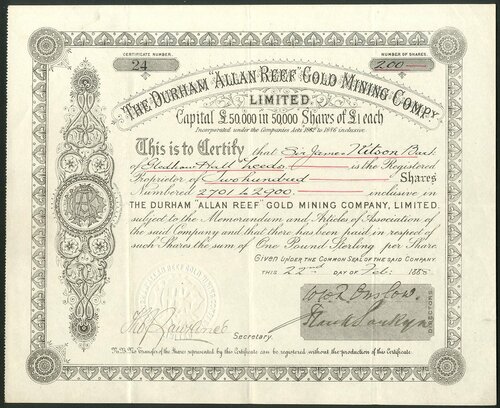 CERTIFICATE NUMBER. NUMBER OF SHARES.
24 200
THE DURHAM "ALLAN REEF" GOLD MINING COMPY
LIMITED.
Capital £50,000 in 50,000 Shares of £1 each
Incorporated under the Companies Acts 1862 to 1886 inclusive.
This is to Certify that Sir James Kitson Bart
of Gledhow Hall Leeds is the Registered
Proprietor of Two Hundred Shares
Numbered 2701 to 2900 inclusive in
THE DURHAM "ALLAN REEF" GOLD MINING COMPANY, LIMITED.
subject to the Memorandum and Articles of Association of
the said Company and that there has been paid in respect of
such Shares the sum of One Pound Sterling per Share.
Given UNDER THE COMMON SEAL OF THE SAID COMPANY
THIS 22nd DAY OF Feb: 1888
DIRECTORS
Secretary.
N.B. No Transfer of the Shares represented by this Certificate can be registered without the production of this Certificate.